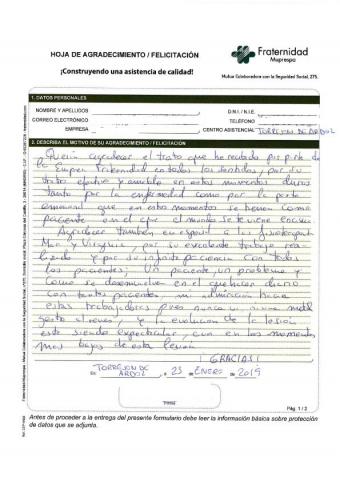 HOJA DE AGRADECIMIENTO / FELICITACIÓN
Fraternidad
Muprespa
¡Construyendo una asistencia de calidad!
Mutua Colaboradora con la Seguridad Social, 275.
1. DATOS PERSONALES
NOMBRE Y APELLIDOS
D.N.I. / N.I.E.
CORREO ELECTRÓNICO
TELÉFONO
EMPRESA
CENTRO ASISTENCIAL TORREJON DE ARDOZ
2. DESCRIBA EL MOTIVO DE SU AGRADECIMIENTO / FELICITACIÓN
Quería agradecer el trato que he recibido por parte de
la Fraternidad en todos los sentidos, por su
trato y amable en estos momentos duros
tanto por la enfermedad como por la parte
emocional que en estos momentos se tienen como
paciente en el que el mundo se te viene encima
Agradecer también en especial a los fisioterapeutas
Mar y Virginia, por su excelente trabajo rea-
lizado y por su infinita paciencia con todos
los pacientes; Un paciente, un problema y
como se desenvuelven en el quehacer diario
con tantos pacientes, mi admiración hacia
estas trabajadoras pues nunca un mal
gesto al revés y la evolución de la lesión
está siendo espectacular, aun en los momentos
mas bajos de esta lesión
¡ GRACIAS !
En TORREJON DE ARDOZ, a 23 de ENERO de 2019
Pág. 1 / 2
Antes de proceder a la entrega del presente formulario debe leer la información básica sobre protección
de datos que se adjunta.